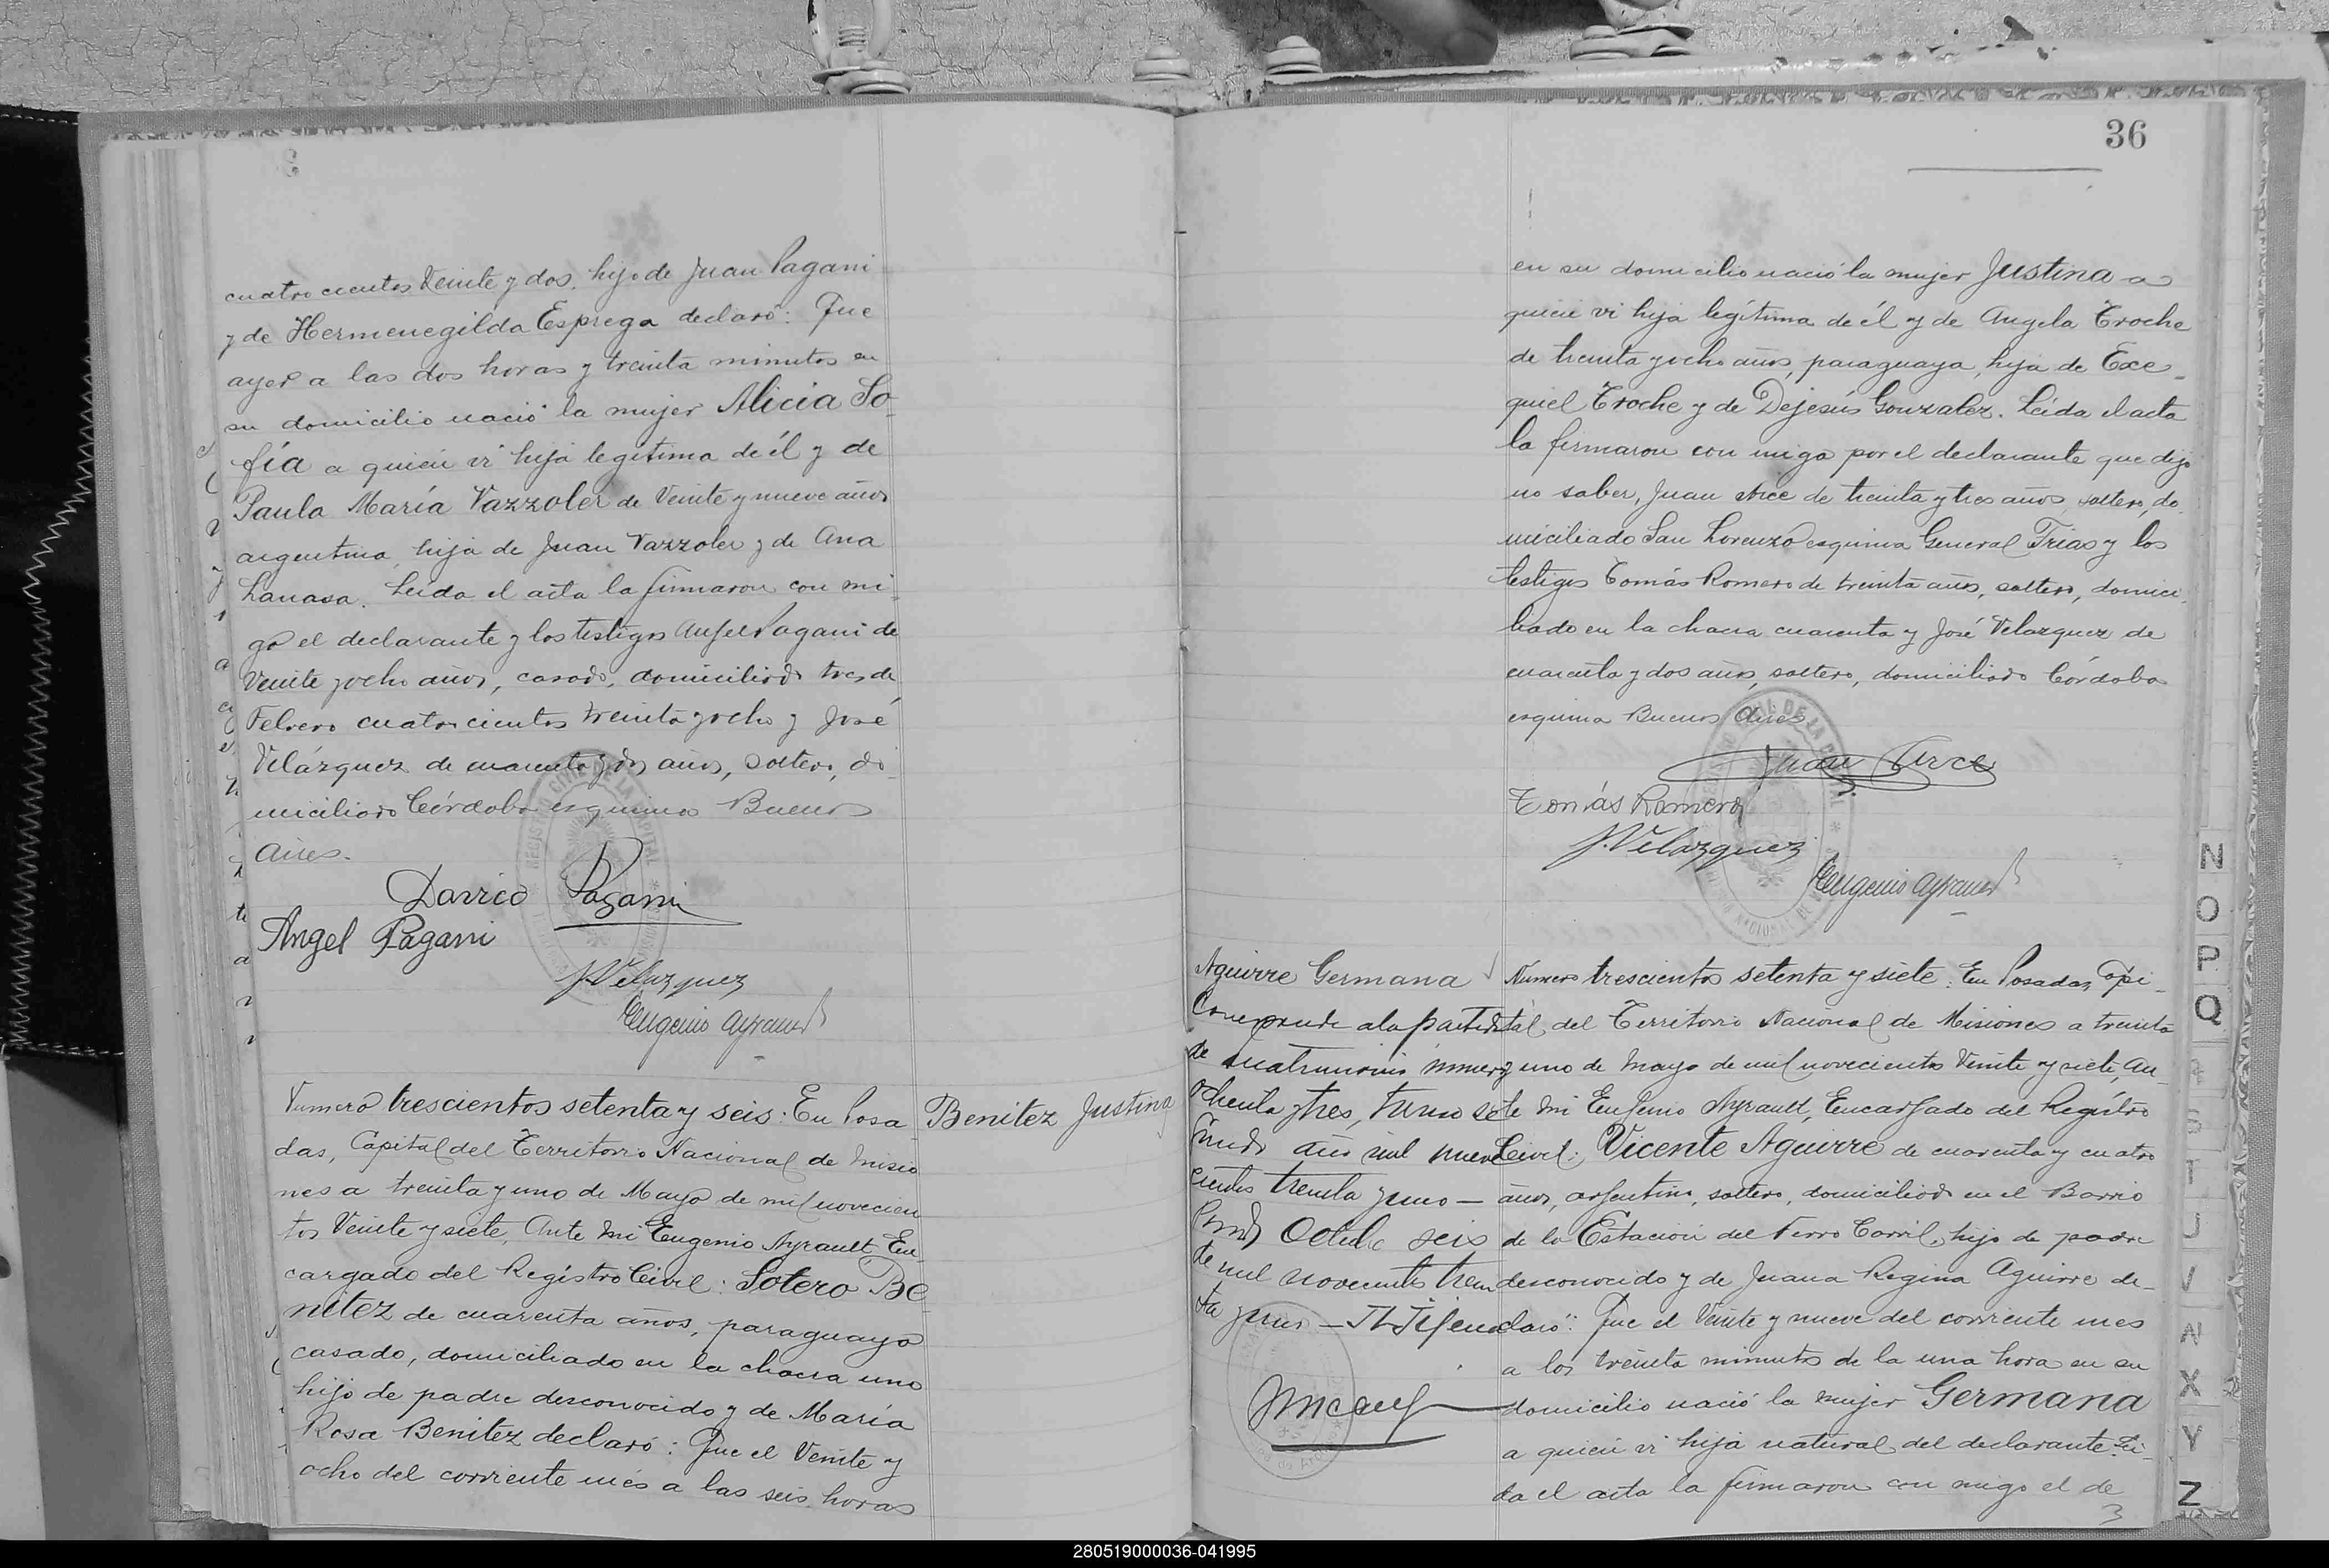 cuatrocientos Veinte y dos, hijo de Juan Pagani
y de Hermenegilda Esprega declaró: Que
ayer a las dos horas y treinta minutos en
su domicilio nació la mujer Alicia So-
fía a quien ví hija legítima de él y de
Paula María Vazzoler de Veinte y nueve años
argentina, hija de Juan Vazzoler y de Ana
Lanasa. Leída el acta la firmaron con mi-
go el declarante y los testigos Angel Pagani de
Veinte y ocho años, casado, domiciliado tres de
Febrero cuatrocientos treinta y ocho y José
Velázquez de cuarenta y dos años, soltero, do-
miciliado Córdoba esquina Buenos
Aires.
Darico Pagani
Angel Pagani
J. Velazquez
Eugenio Ayrault
Numero trescientos setenta y seis: En Posa-
das, Capital del Territorio Nacional de Misio-
nes a treinta y uno de Mayo de mil novecien-
tos Veinte y siete, Ante mi Eugenio Ayrault, En-
cargado del Registro Civil: Sotero Be-
nitez de cuarenta años, paraguayo
casado, domiciliado en la chacra uno
hijo de padre desconocido y de María
Rosa Benitez declaró: Que el Veinte y
ocho del corriente mes a las seis horas
Benitez Justina
36
en su domicilio nació la mujer Justina a
quien ví hija legítima de él y de Angela Troche
de treinta y ocho años, paraguaya, hija de Exe-
quiel Troche y de Dejesús Gonzalez. Leída el acta
la firmaron con migo por el declarante que dijo
no saber, Juan Arce de treinta y tres años, soltero, do-
miciliado San Lorenzo esquina General Frias y los
testigos Tomás Romero de treinta años, soltero, domici-
liado en la chacra cuarenta y José Velazquez de
cuarenta y dos años, soltero, domiciliado Córdoba
esquina Buenos Aires
Juan Arce
Tomás Romero
J. Velazquez
Eugenio Ayrault
Aguirre Germana
Corresponde a la partida
de matrimonio numero
ochenta y tres, tomo se-
gundo año mil nueve
cientos treinta y uno —
Posadas Octubre seis
de mil novecientos trein
ta y uno —
Numero trescientos setenta y siete: En Posadas, Capi-
tal del Territorio Nacional de Misiones a treinta
y uno de Mayo de mil novecientos Veinte y siete, An-
te mi Eugenio Ayrault, Encargado del Registro
Civil: Vicente Aguirre de cuarenta y cuatro
años, argentino, soltero, domiciliado en el Barrio
de la Estación del Ferro Carril, hijo de padre
desconocido y de Juana Regina Aguirre de-
claró: Que el Veinte y nueve del corriente mes
a los treinta minutos de la una hora en su
domicilio nació la mujer Germana
a quien ví hija natural del declarante. Leí-
da el acta la firmaron con migo el de
3
N
O
P
Q
R
S
T
J
V
N
X
Y
Z
280519000036-041995